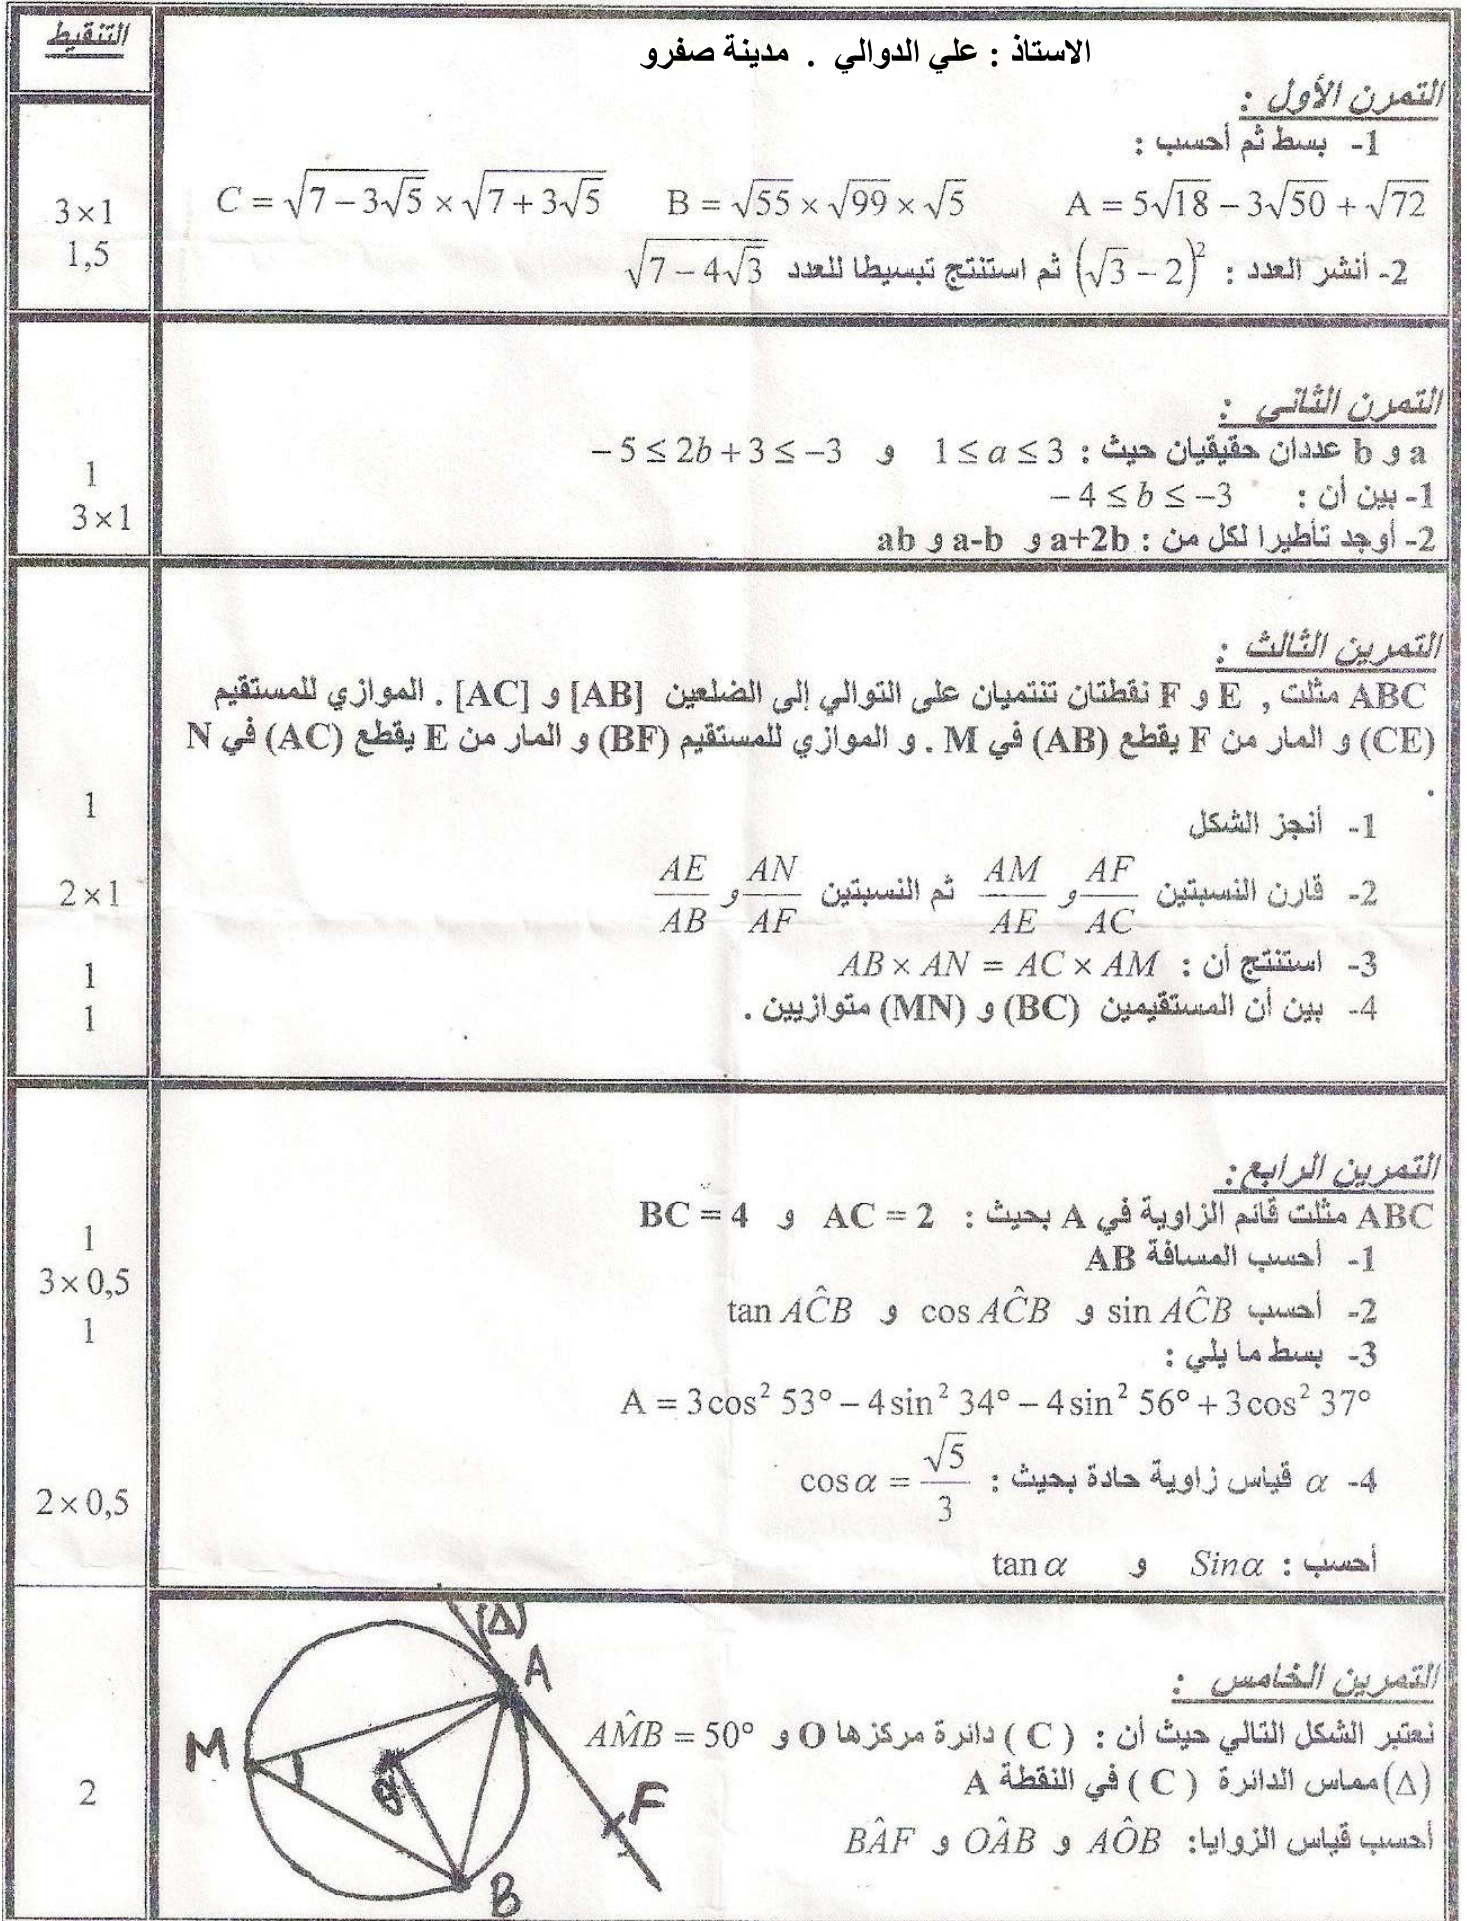 التنقيط
الاستاذ : علي الدوالي . مدينة صفرو
التمرن الأول :
1- بسط ثم أحسب :
3×1
A = 5√18 − 3√50 + √72 B = √55 × √99 × √5 C = √(7 − 3√5) × √(7 + 3√5)
1,5
2- أنشر العدد : (√3 − 2)² ثم استنتج تبسيطا للعدد √(7 − 4√3)
التمرن الثاني :
a و b عددان حقيقيان حيث : 1 ≤ a ≤ 3 و −5 ≤ 2b + 3 ≤ −3
1
1- بين أن : −4 ≤ b ≤ −3
3×1
2- أوجد تأطيرا لكل من : a+2b و a-b و ab
التمرين الثالث :
ABC مثلت , E و F نقطتان تنتميان على التوالي إلى الضلعين [AB] و [AC] . الموازي للمستقيم
(CE) و المار من F يقطع (AB) في M . و الموازي للمستقيم (BF) و المار من E يقطع (AC) في N
.
1
1- أنجز الشكل
2×1
2- قارن النسبتين AF/AC و AM/AE ثم النسبتين AN/AF و AE/AB
1
3- استنتج أن : AB × AN = AC × AM
1
4- بين أن المستقيمين (BC) و (MN) متوازيين .
التمرين الرابع :
ABC مثلت قائم الزاوية في A بحيث : AC = 2 و BC = 4
1
1- أحسب المسافة AB
3×0,5
2- أحسب sin AĈB و cos AĈB و tan AĈB
1
3- بسط ما يلي :
A = 3cos² 53° − 4sin² 34° − 4sin² 56° + 3cos² 37°
2×0,5
4- α قياس زاوية حادة بحيث : cos α = √5/3
أحسب : Sinα و tan α
التمرين الخامس :
نعتبر الشكل التالي حيث أن : ( C ) دائرة مركزها O و AM̂B = 50°
2
(Δ) مماس الدائرة ( C ) في النقطة A
أحسب قياس الزوايا: AÔB و OÂB و BÂF
(Δ)
A
M
O
F
B